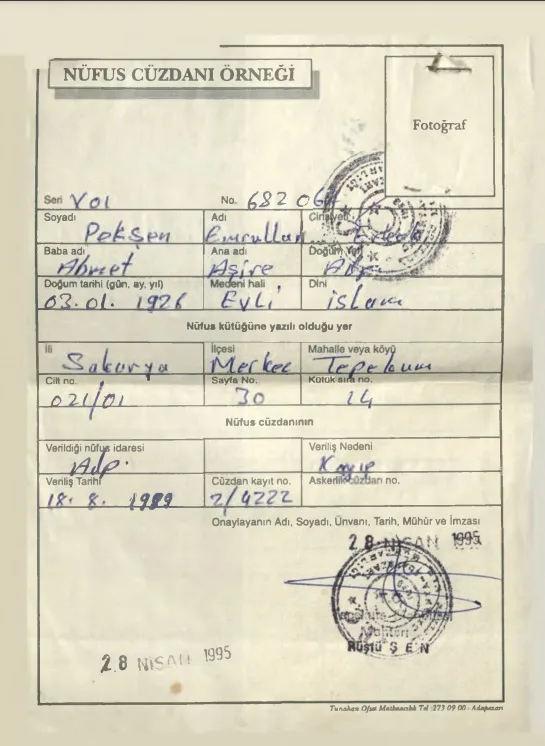 NÜFUS CÜZDANI ÖRNEĞİ
Fotoğraf
Seri VOI No. 68206
Soyadı Adı Cinsiyeti
Pekşen Emrullah Erkek
Baba adı Ana adı Doğum Yeri
Ahmet Aşire
Doğum tarihi (gün, ay, yıl) Medeni hali Dini
03.01.1926 Evli islam
Nüfus kütüğüne yazılı olduğu yer
İli İlçesi Mahalle veya köyü
Sakarya Merkez Tepekum
Cilt no. Sayfa No. Kütük sıra no.
021/01 30 14
Nüfus cüzdanının
Verildiği nüfus idaresi Veriliş Nedeni
Adp. Kayıp
Veriliş Tarihi Cüzdan kayıt no. Askerlik cüzdan no.
18.8.1989 2/4222
Onaylayanın Adı, Soyadı, Ünvanı, Tarih, Mühür ve İmzası
28 NİSAN 1995
Muhtarı
Rüştü ŞEN
28 NİSAN 1995
Tunahan Ofset Matbaacılık Tel :273 09 00 - Adapazarı